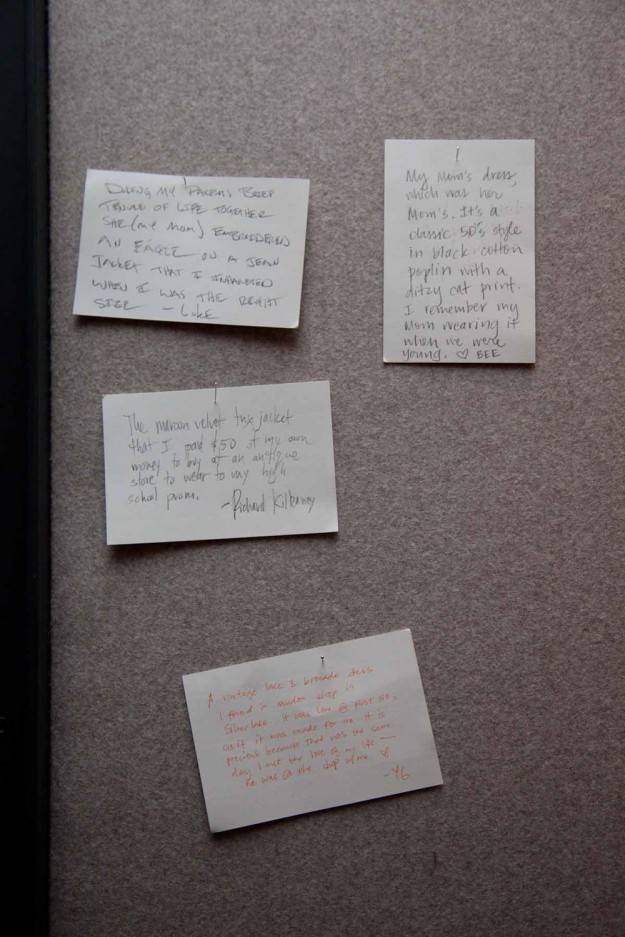 DURING MY PARENTS BRIEF
TENURE OF LIFE TOGETHER
SHE (my mom) EMBROIDERED
AN EAGLE ON A JEAN
JACKET THAT I INHERITED
WHEN I WAS THE RIGHT
SIZE - LUKE
My Mom's dress,
which was her
Mom's. It's a
classic 50's style
in black cotton
poplin with a
ditzy cat print.
I remember my
Mom wearing it
when we were
young. ♡ BEE
The maroon velvet tux jacket
that I paid $50 of my own
money to buy at an antique
store to wear to my high
school prom.
- Richard
A vintage lace & brocade dress
I found in a shop in
Silverlake. It was love @ first site,
as if it was made for me. It is
precious because that was the same
day I met the love of my life —
he was @ the shop